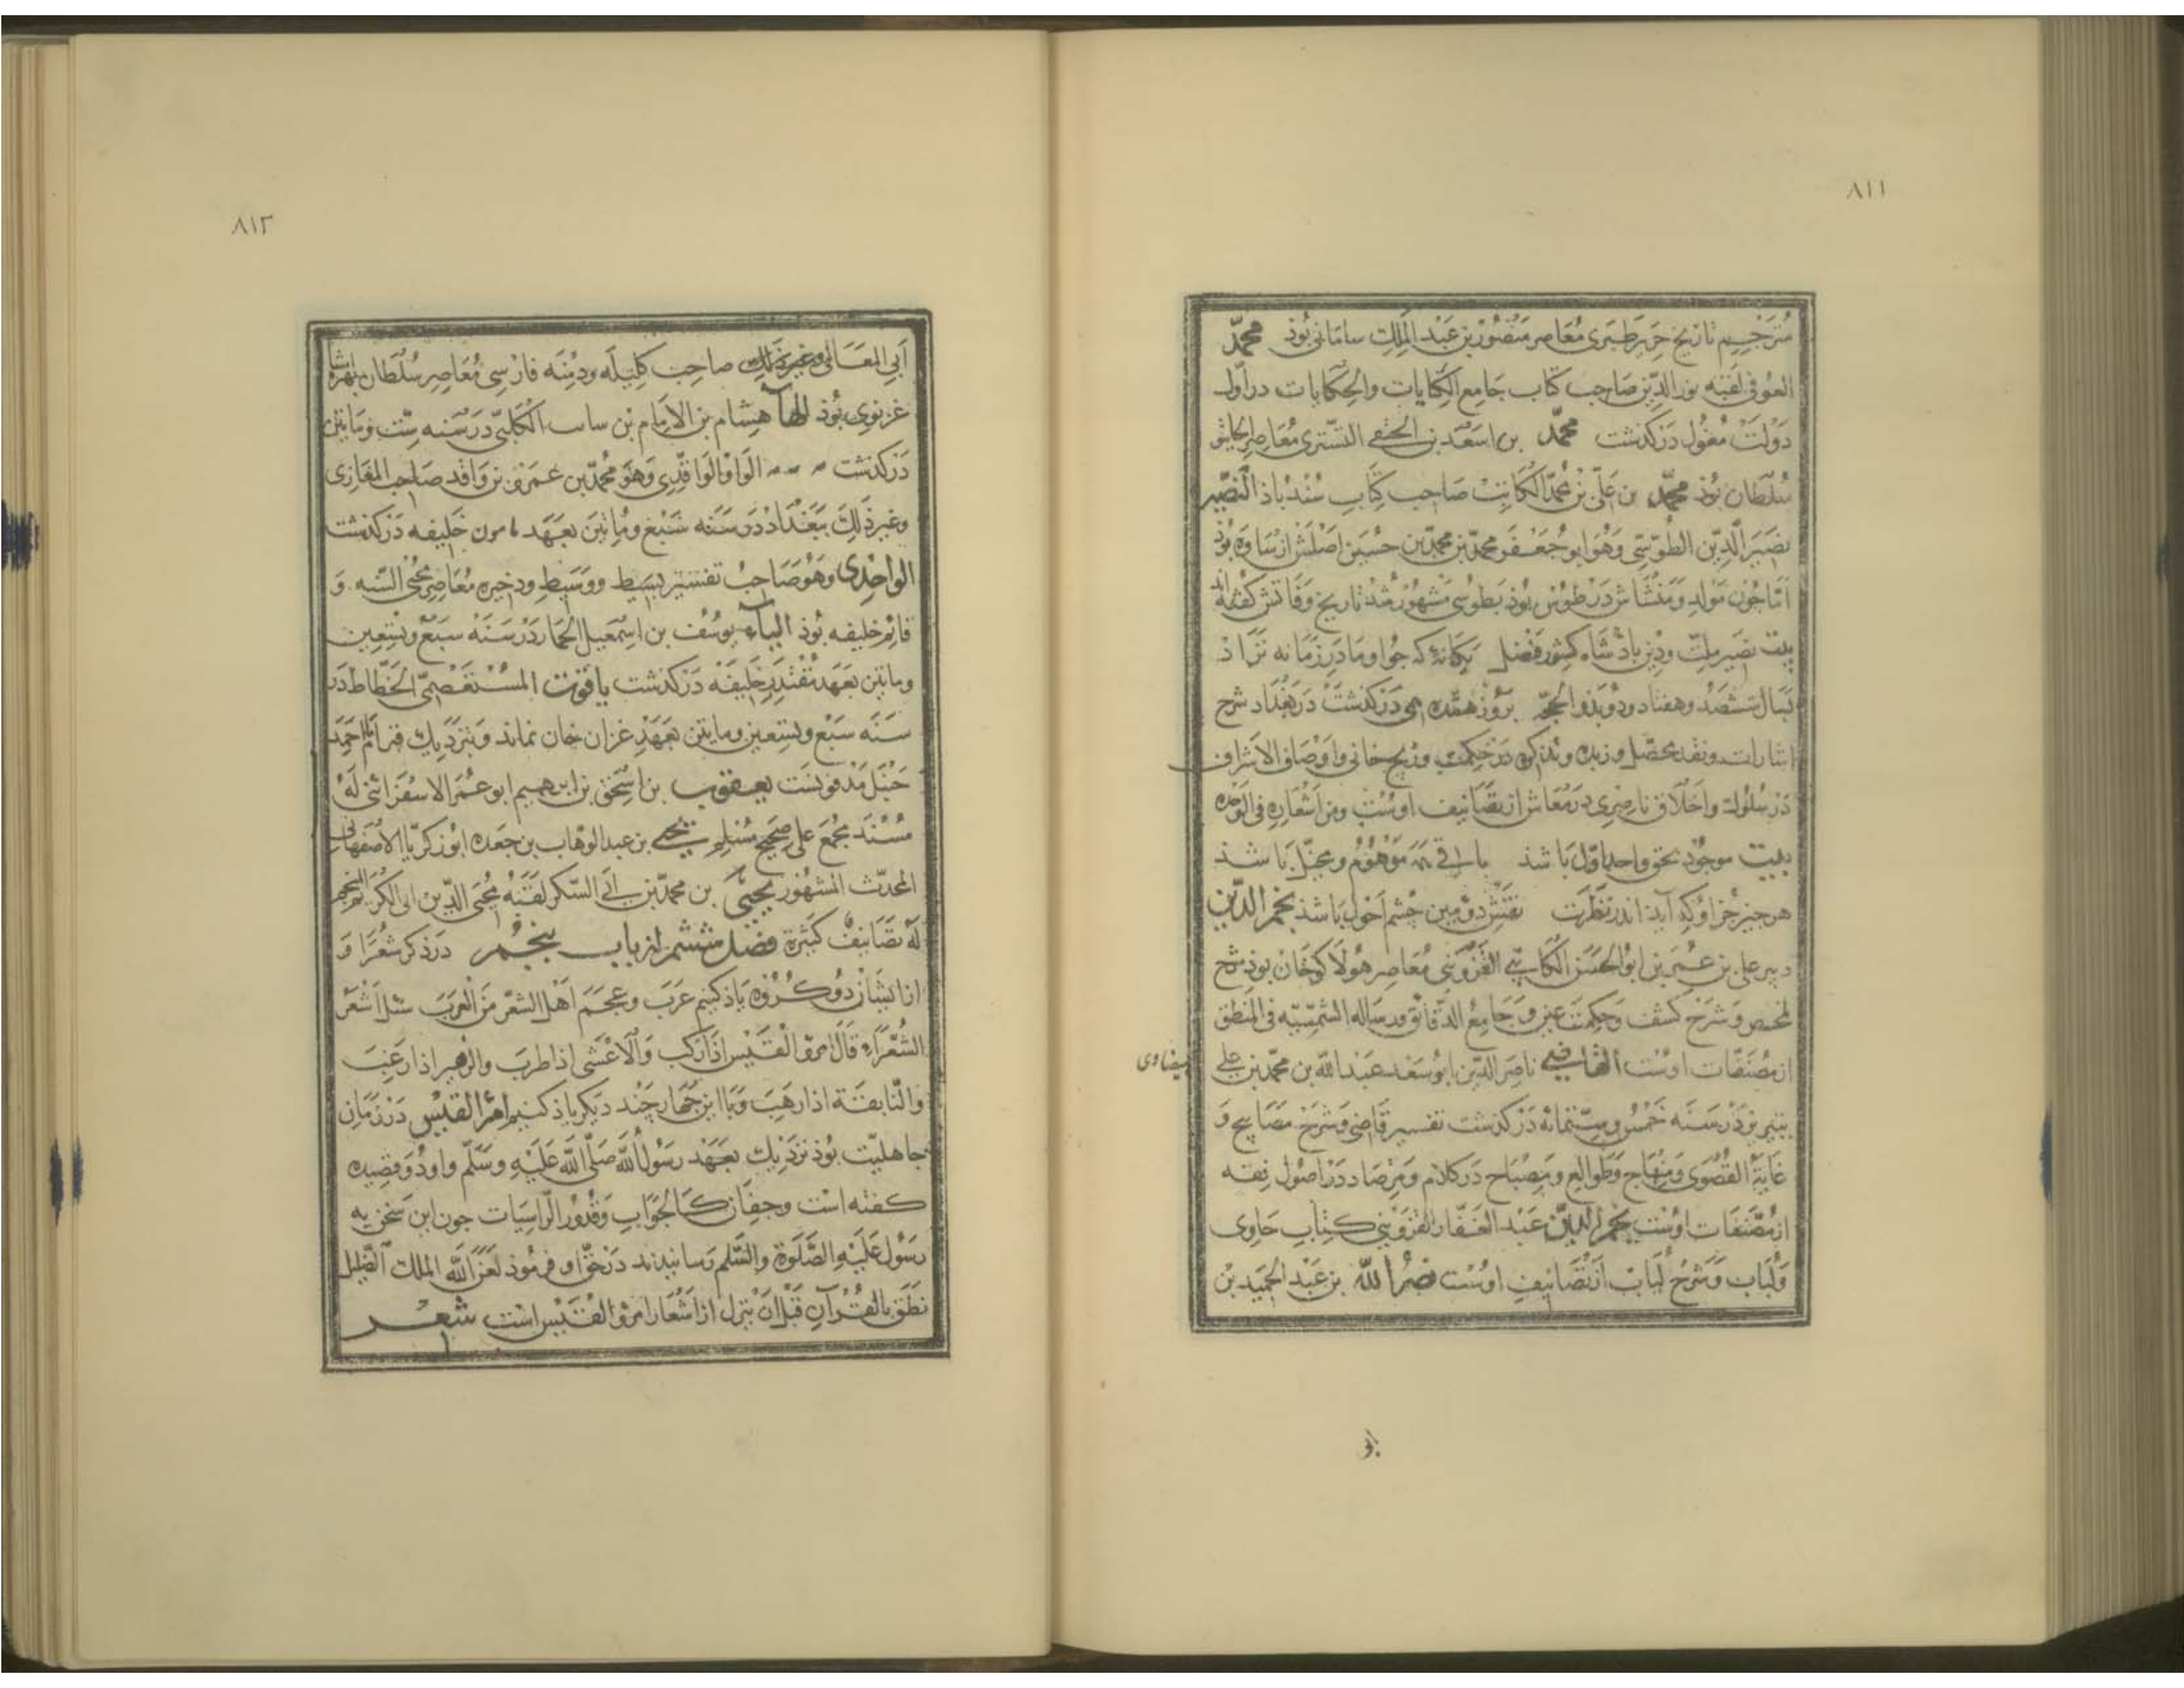 ٨١١
مُترجِم تاريخ جرير طبرى مُعاصر منصور بن عبد الملك سامانى بوذ محمّد
العوفى لقبه نور الدّين صاحب كتاب جامع الحكايات والحكايات در اول
دولت مغول دركذشت محمّد بن اسعد بن الحنفى التسترى معاصر الجايتو
سُلطان بوذ محمّد بن على بن محمّد الكاتب صاحب كتاب سندباذ النصير
نصير الدّين الطوسى وهو ابو جعفر محمّد بن محمّد بن حسين اصلش از ساوه بوذ
امّا جون مولد ومنشاش در طوس بوذ بطوسى مشهور شد تاريخ وفاتش كفته‌اند
بيت نصير ملت ودين باذشاه كشور فضل يكانه‌ كه جو او مادر زمانه نزاذ
بسال ششصد وهفتاد ودو بذو الحجّه بروز هجدهمى دركذشت در بغداد شرح
اشارات ونقد محصّل وزبده وتذكره در حكمت وزيج خانى واوصاف الاشراف
در سلوك واخلاق ناصرى در معاش از تصانيف اوست ومن اشعاره فى الوحده
بيت موجود بحق واحد اوّل باشذ باقى همه موهوم ومخيّل باشذ
هر جيز جز او كه آيذ اندر نظرت نقش دومين جشم احول باشذ نجم الدّين
دبير على بن عمر بن ابو الحسن الكاتبى القزوينى معاصر هولاكو خان بوذ شرح
ملخص وشرح كشف وحكمت عين وجامع الدقائق ورساله الشمسيّه فى المنطق
از مصنّفات اوست القاضى ناصر الدّين ابو سعد عبد الله بن محمّد بن على
بيضاوى
بتبريز در سنه خمس وستمائه دركذشت تفسير قاضى وشرح مصابيح و
غاية القصوى ومنهاج وطوالع ومصباح در كلام ومرصاد در اصول فقه
از مصنّفات اوست نجم الدّين عبد الغفّار القزوينى كتاب حاوى
ولباب وشرح لباب از تصانيف اوست نصر الله بن عبد الحميد بن
٨١٢
ابى المعالى وغير ذلك صاحب كليله ودمنه فارسى معاصر سلطان بهرامشاه
غزنوى بوذ الهآ هشام بن الامام بن سا الكلبىّ در سنه ستّ ومايتين
دركذشت الواو الواقدى وهو محمّد بن عمر بن واقد صاحب المغازى
وغير ذلك ببغداد در سنه سبع ومايتين بعهد مامون خليفه دركذشت
الواحدى وهو صاحب تفسير بسيط ووسيط ودخيره معاصر محيى السّنه و
قائم خليفه بوذ اليآء يوسف بن اسمعيل الحمار در سنه سبع وتسعين
ومايتين بعهد مقتدر خليفه دركذشت ياقوت المستعصمىّ الخطّاط در
سنه سبع وتسعين ومايتين بعهد غزان خان نماند وبنزديك قبر امام احمد
حنبل مدفونست يعقوب بن اسحق بن ابرهيم ابو عمر الاسفرائنى له
مُسند بجمع على صحيح مسلم يحيى بن عبد الوهاب بن جعده ابو زكريّا الاصفهانى
المحدّث المشهور يحيى بن محمّد بن ابى السّكر لقبه محيى الدّين ابى الكرم المنجم
له تصانيف كثيرة فصل ششم از باب پنجم در ذكر شعرا و
از ايشان دو كروه ياذ كنيم عرب وعجم اهل الشعر من العرب سئل اشعر
الشعراء قال امرؤ القيس اذا ركب والاعشى اذا طرب والزهير اذا رغب
والنّابغة اذا رهب وبا اين جهار جند ديكر ياذ كنيم امرا القيس در زمان
جاهليّت بوذ نزذيك بعهد رسول الله صلّى الله عليه وسلّم واو دو قصيده
كفته است وجفان كالجواب وقدور الراسيات جون اين سخن به
رسول عليه الصّلوة والسّلم رسانيدند در حقّ او فرموذ لعن الله الملك الضّليل
نطق بالقرآن قبل ان ينزل از اشعار امرؤ القيس است شعر